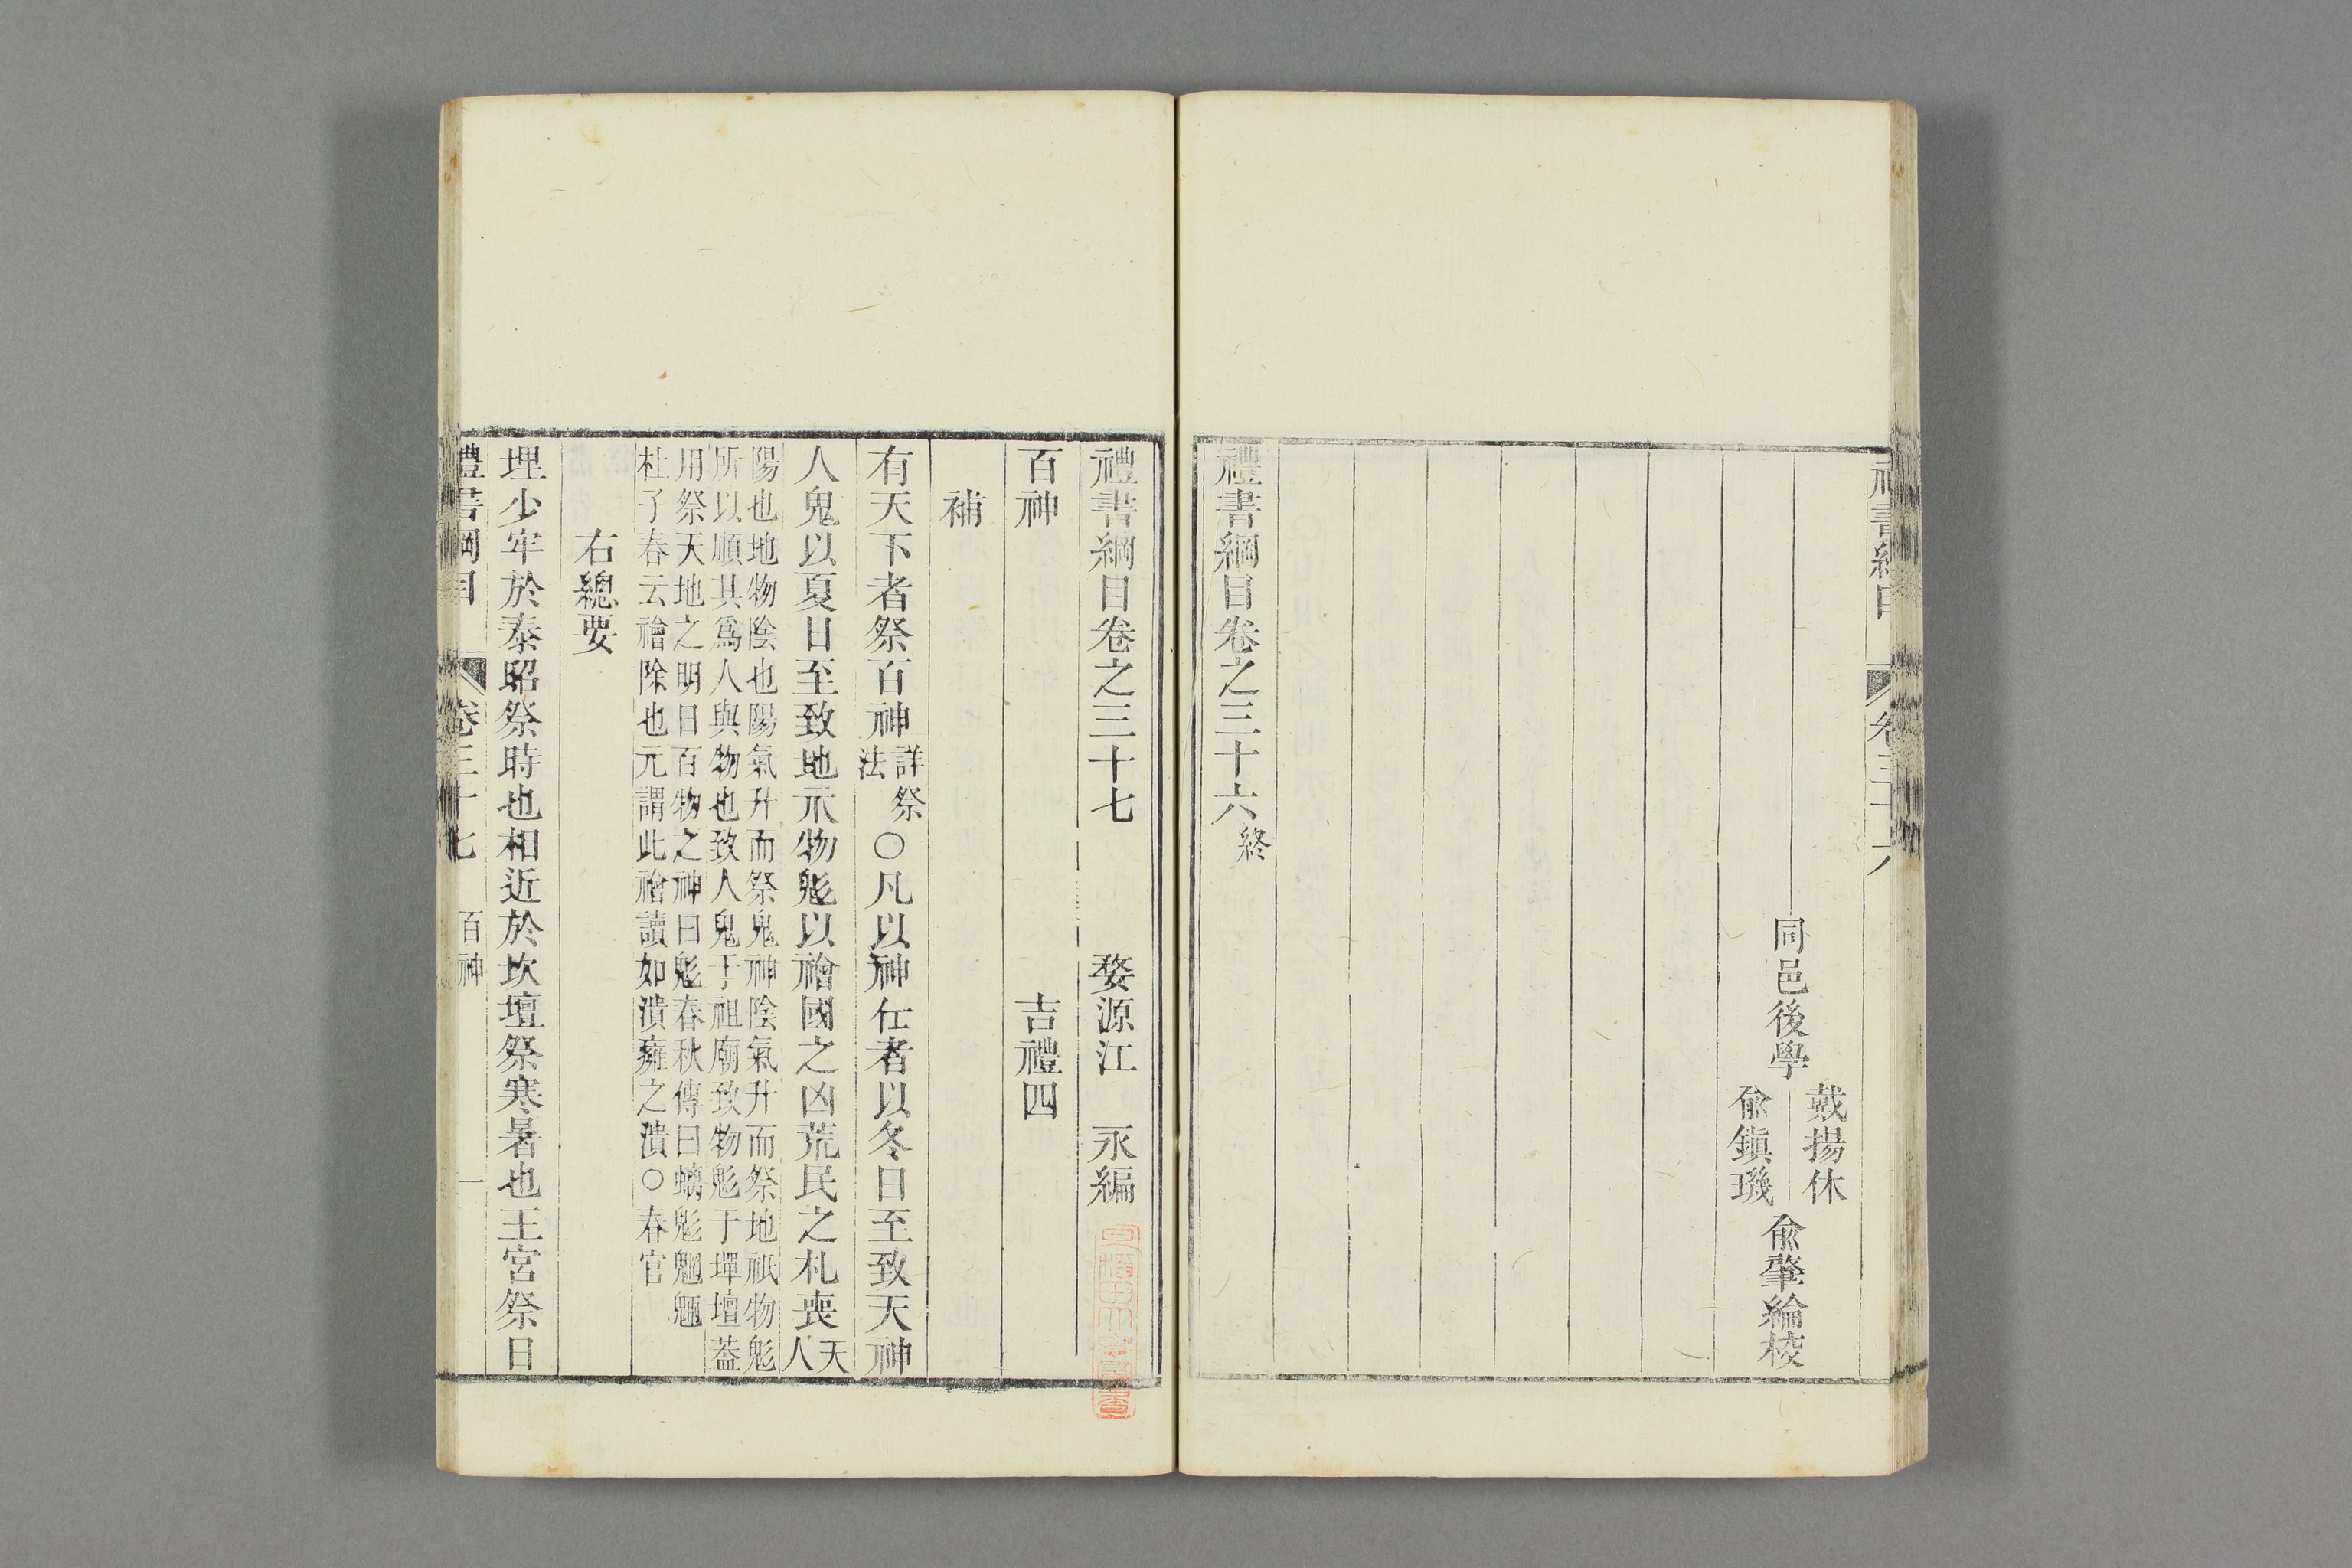 禮書綱目
卷三十六
同邑後學
戴揚休
俞鎮璣
俞肇綸校
禮書綱目卷之三十六終
禮書綱目卷之三十七
婺源江　永編
百神
吉禮四
補
有天下者祭百神詳祭法○凡以神仕者以冬日至致天神
人鬼以夏日至致地示物鬽以禬國之凶荒民之札喪天人
陽也地物陰也陽氣升而祭鬼神陰氣升而祭地祇物鬽
所以順其爲人與物也致人鬼于祖廟致物鬽于墠壇葢
用祭天地之明日百物之神曰鬽春秋傳曰螭鬽魍魎
杜子春云禬除也元謂此禬讀如潰癰之潰○春官
右總要
埋少牢於泰昭祭時也相近於坎壇祭寒暑也王宮祭日
禮書綱目
卷三十七
百神
一